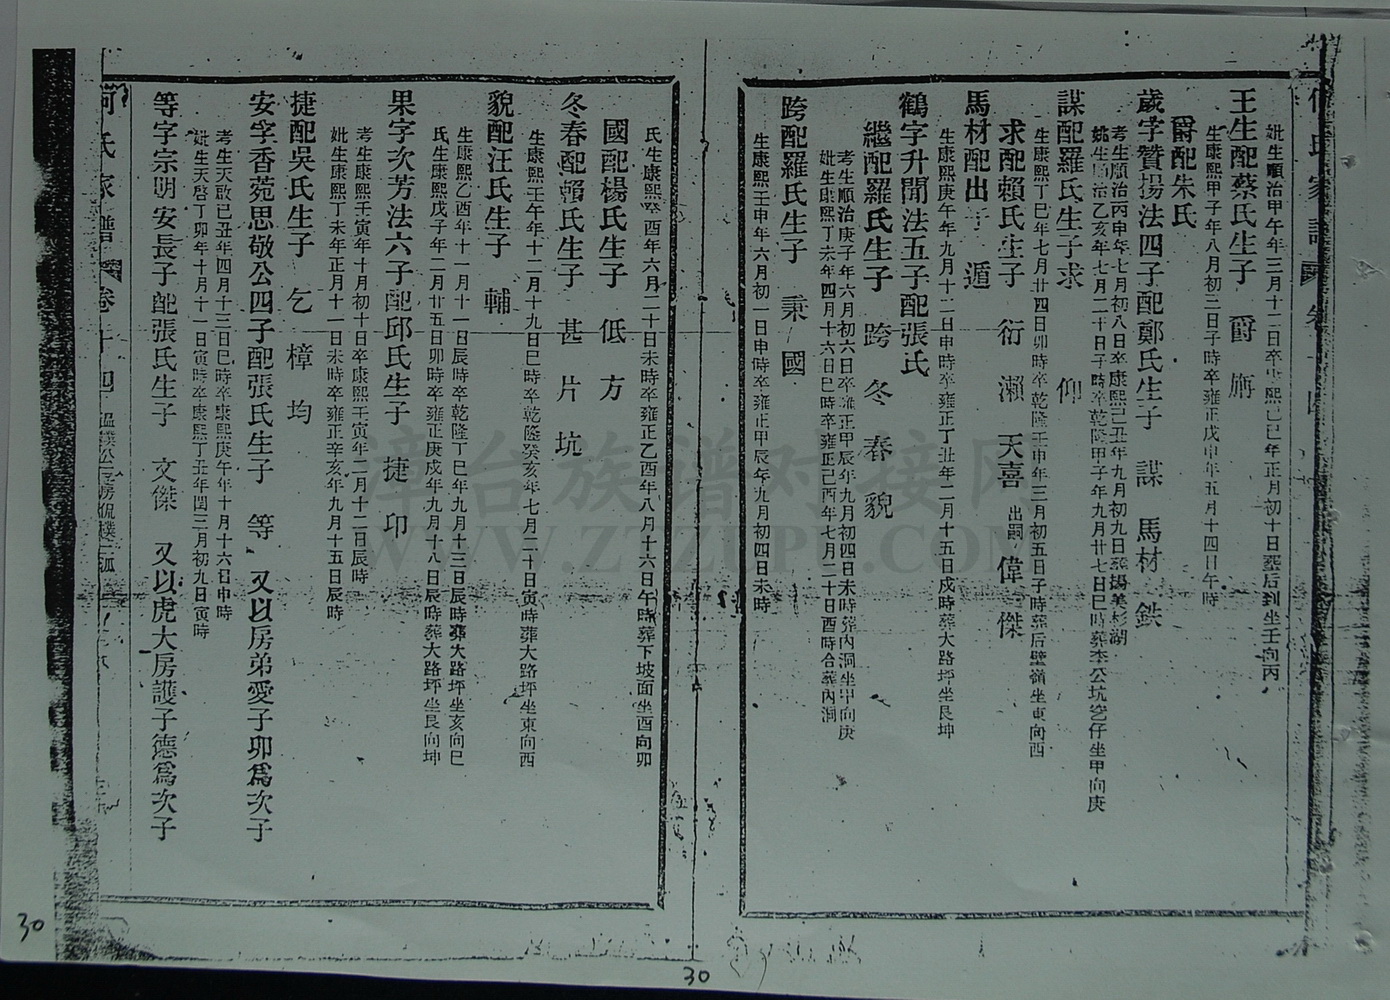 妣生順治甲午年三月十二日卒康熙己巳年正月初十日葬后到坐壬向丙
王生配蔡氏生子　爵　旃
生康熙甲子年八月初三日子時卒雍正戊申年五月十四日午時
爵配朱氏
歲字贊揚法四子配鄭氏生子　謀　馬材　鉄
考生順治丙申年七月初八日卒康熙己丑年九月初九日葬揚美杉湖
妣生順治乙亥年七月二十日子時卒乾隆甲子年九月廿七日巳時葬李公坑窑仔坐甲向庚
謀配羅氏生子求　仰
生康熙丁巳年七月廿四日卯時卒乾隆壬申年三月初五日子時葬后壁嶺坐東向西
求配賴氏生子　衍　瀨　天喜　出嗣　偉　傑
馬材配出子　遁
生康熙庚午年九月十二日申時卒雍正丁丑年二月十五日戌時葬大路坪坐艮坤
鶴字升聞法五子配張氏
繼配羅氏生子　跨　冬　春　貌
考生順治庚子年六月初六日卒雍正甲辰年九月初四日未時葬內洞坐甲向庚
妣生康熙丁未年四月十六日巳時卒雍正己酉年七月二十日酉時合葬內洞
跨配羅氏生子　秉　國
生康熙壬申年六月初一日申時卒雍正甲辰年九月初四日未時
氏生康熙癸酉年六月二十日未時卒雍正乙酉年八月十六日午時葬下坡面坐酉向卯
國配楊氏生子　低　方
冬春配賴氏生子　甚　片　坑
生康熙壬午年十二月十九日巳時卒乾隆癸亥年七月二十日寅時葬大路坪坐東向西
貌配汪氏生子　輔
生康熙乙酉年十一月十一日辰時卒乾隆丁巳年九月十三日辰時葬大路坪坐亥向巳
氏生康熙戊子年二月廿五日卯時卒雍正庚戌年九月十八日辰時葬大路坪坐艮向坤
果字次芳法六子配邱氏生子　捷　印
考生康熙壬寅年十月初十日卒康熙壬寅年二月十二日辰時
妣生康熙丁未年正月十一日未時卒雍正辛亥年九月十五日辰時
捷配吳氏生子　乞　樟　均
安字香菀思敬公四子配張氏生子　等　又以房弟愛子卯爲次子
考生天啟已丑年四月十三日巳時卒康熙庚午年十月十六日申時
妣生天啓丁卯年十月十一日寅時卒康熙丁丑年閏三月初九日寅時
等字宗明安長子配張氏生子　文傑　又以虎大房護子德爲次子
何氏家譜　卷十四
30
30
漳台族谱对接网
WWW.ZTZUPU.COM